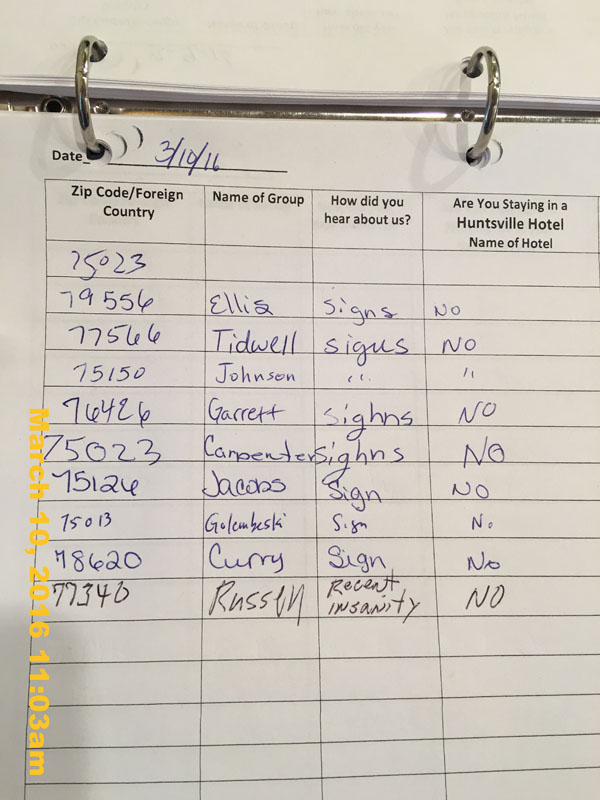 Date 3/10/16
Zip Code/Foreign Country Name of Group How did you hear about us? Are You Staying in a Huntsville Hotel Name of Hotel
75023
79556 Ellis signs NO
77566 Tidwell signs NO
75150 Johnson " "
76426 Garrett sighns NO
75023 Carpenter sighns NO
75126 Jacobs Sign NO
75013 Golembeski Sign No
78620 Curry Sign No
77340 Russell Recent insanity NO
March 10, 2016 11:03am